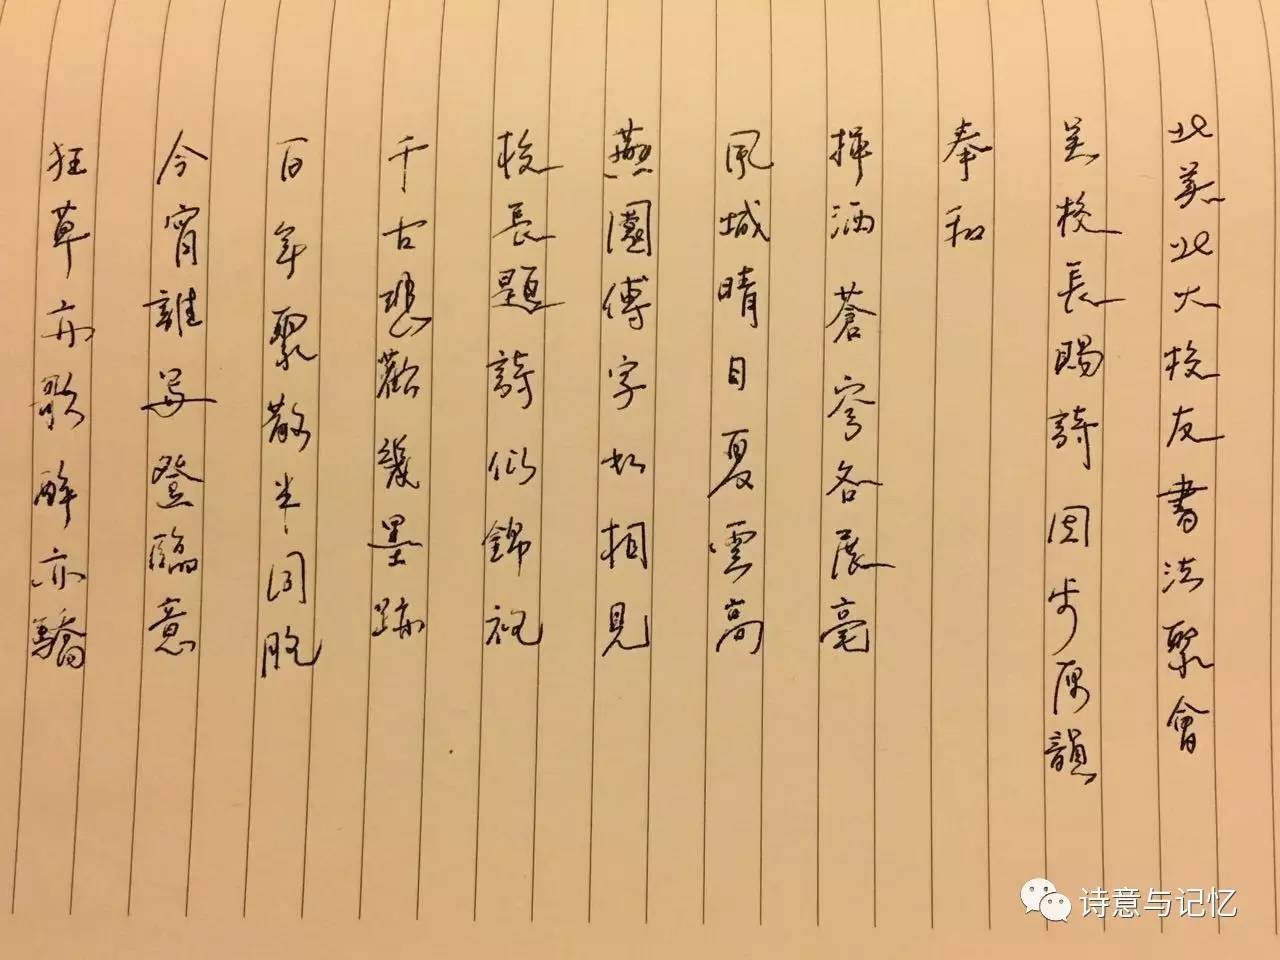 北美北大校友書法聚會
吴校長賜詩因步原韻
奉和
揮洒蒼穹各展毫
風城晴日夏雲高
燕園傳字如相見
校長題詩似錦袍
千古悲歡幾墨跡
百年聚散半同胞
今宵誰与登臨意
狂草亦歌醉亦驕
诗意与记忆